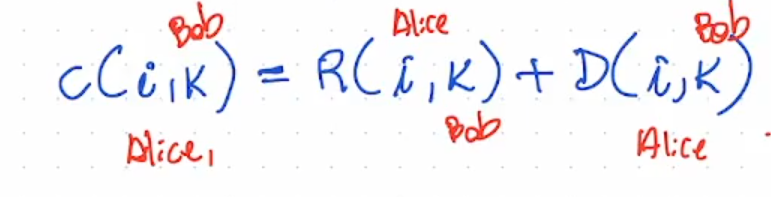 Bob Alice Bob
C(i,K) = R(i,K) + D(i,K)
Alice, Bob Alice